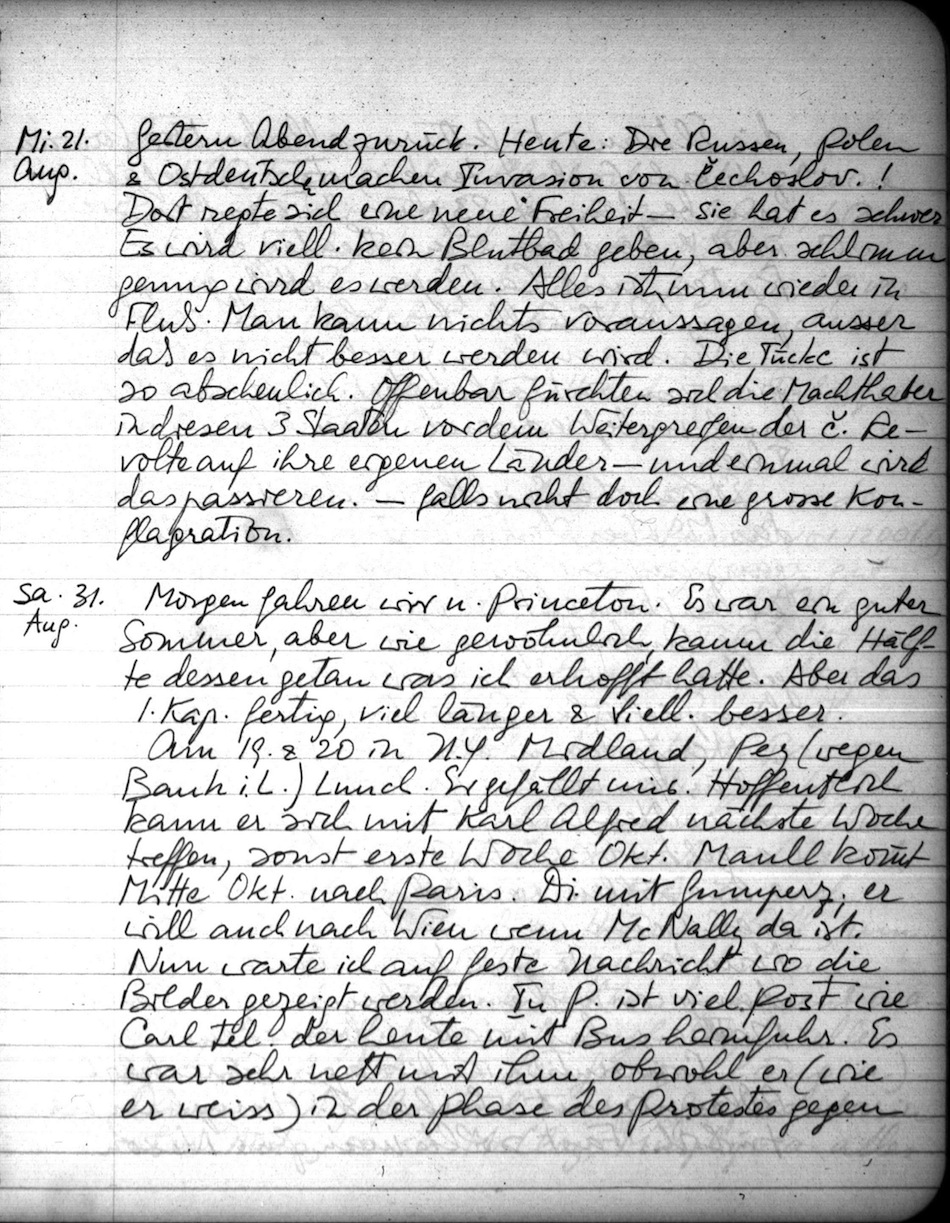 Mi. 21. Gestern Abend zurück. Heute: Die Russen, Polen
Aug. & Ostdeutsche machen Invasion von Čechoslov. !
Dort regte sich eine neue Freiheit — sie hat es schwer
Es wird viell. kein Blutbad geben, aber schlimm
genug wird es werden. Alles ist nun wieder in
Fluß. Man kann nichts voraussagen, ausser
daß es nicht besser werden wird. Die Tücke ist
so abscheulich. Offenbar fürchten sich die Machthaber
in diesen 3 Staaten vor dem Weitergreifen der č. Re-
volte auf ihre eigenen Länder — und einmal wird
das passieren. — falls nicht doch eine grosse Kon-
flagration.
Sa. 31. Morgen fahren wir n. Princeton. Es war ein guter
Aug. Sommer, aber wie gewöhnlich, kaum die Hälf-
te dessen getan was ich erhofft hatte. Aber das
1. Kap. fertig, viel länger & viell. besser.
Am 19. & 20 in N.Y. Midland, (wegen
Bank i. L.) Lunch. Er gefällt mir. Hoffentlich
kann er sich mit Karl Alfred nächste Woche
treffen, sonst erste Woche Okt. kom̄t
Mitte Okt. nach Paris. Di. mit Gumperz; er
will auch nach Wien wenn McNally da ist.
Nun warte ich auf feste Nachricht wo die
Bilder gezeigt werden. In P. ist viel Post wie
Carl tel. der heute mit Bus heimfuhr. Es
war sehr nett mit ihm, obwohl er (wie
er weiss) in der Phase des Protestes gegen